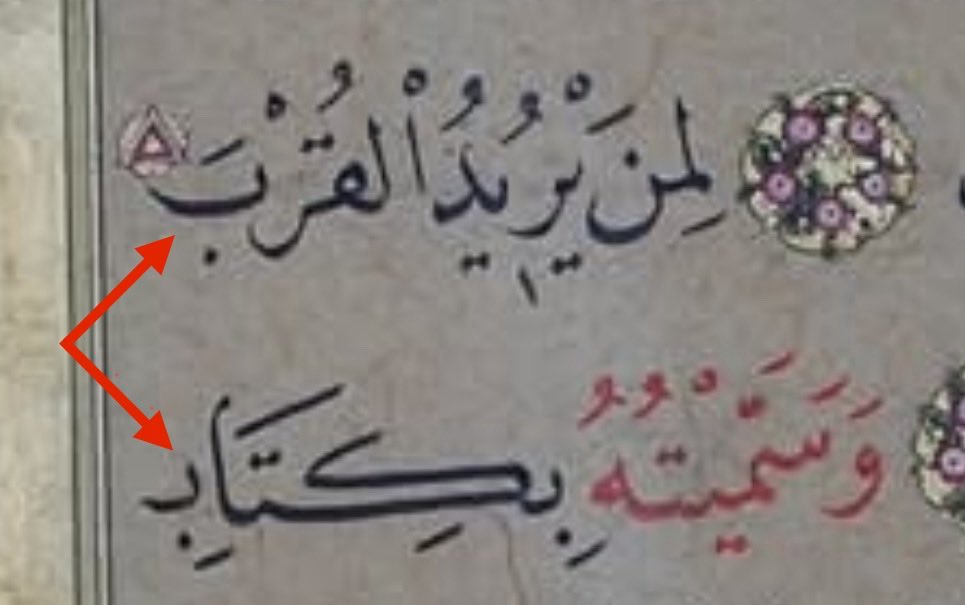 لِمَنْ يُرِيدُ الْقُرْبَ
وَسَمَّيْتُهُ بِكِتَابِ